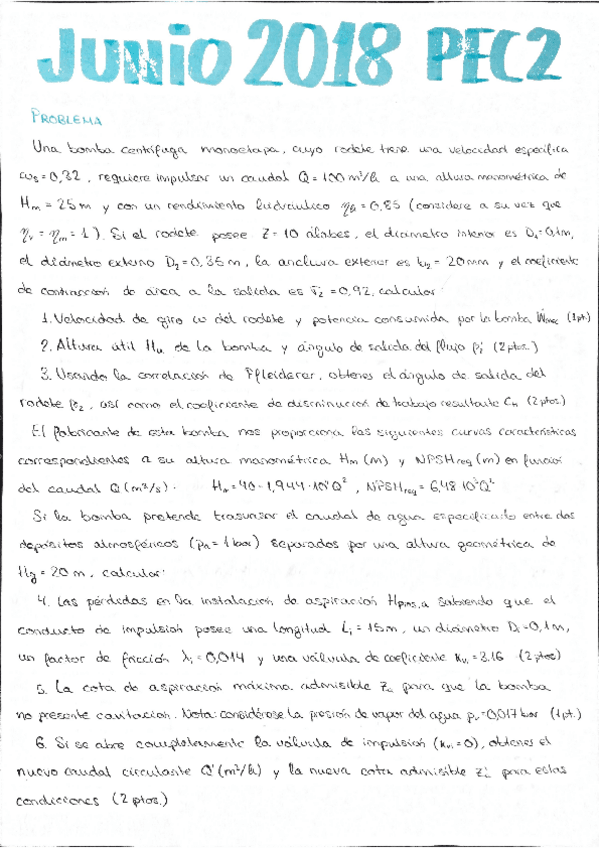 JUNIO 2018 PEC2
PROBLEMA
Una bomba centrífuga monoetapa, cuyo rodete tiene una velocidad específica
ωs = 0,32, requiere impulsar un caudal Q = 100 m³/h a una altura manométrica de
Hm = 25 m y con un rendimiento hidráulico ηh = 0,85 (considere a su vez que
ηv = ηm = 1). Si el rodete posee Z = 10 álabes, el diámetro interior es D₁ = 0,1m,
el diámetro externo D₂ = 0,35 m, la anchura exterior es b₂ = 20mm y el coeficiente
de contracción de área a la salida es τ₂ = 0,92, calcular:
1. Velocidad de giro ω del rodete y potencia consumida por la bomba Ẇmec (1pt.)
2. Altura útil Hu de la bomba y ángulo de salida del flujo β₂' (2 ptos.)
3. Usando la correlación de Pfleiderer, obtener el ángulo de salida del
rodete β₂, así como el coeficiente de disminución de trabajo resultante CH (2 ptos.)
El fabricante de esta bomba nos proporciona las siguientes curvas características
correspondientes a su altura manométrica Hm (m) y NPSHreq (m) en función
del caudal Q (m³/s). Hm = 40 - 1,944·10⁴Q², NPSHreq = 6,48·10³Q²
Si la bomba pretende trasvasar el caudal de agua especificado entre dos
depósitos atmosféricos (pa = 1 bar) separados por una altura geométrica de
Hg = 20 m, calcular:
4. Las pérdidas en la instalación de aspiración sabiendo que el
conducto de impulsión posee una longitud Li = 15m, un diámetro Di = 0,1m,
un factor de fricción λi = 0,014 y una válvula de coeficiente kvi = 3.16 (2 ptos)
5. La cota de aspiración máxima admisible Za para que la bomba
no presente cavitación. Nota: considérese la presión de vapor del agua pv = 0,017 bar (1pt.)
6. Si se abre completamente la válvula de impulsión (kvi = 0), obtener el
nuevo caudal circulante Q' (m³/h) y la nueva cota admisible Za' para estas
condiciones (2 ptos.)